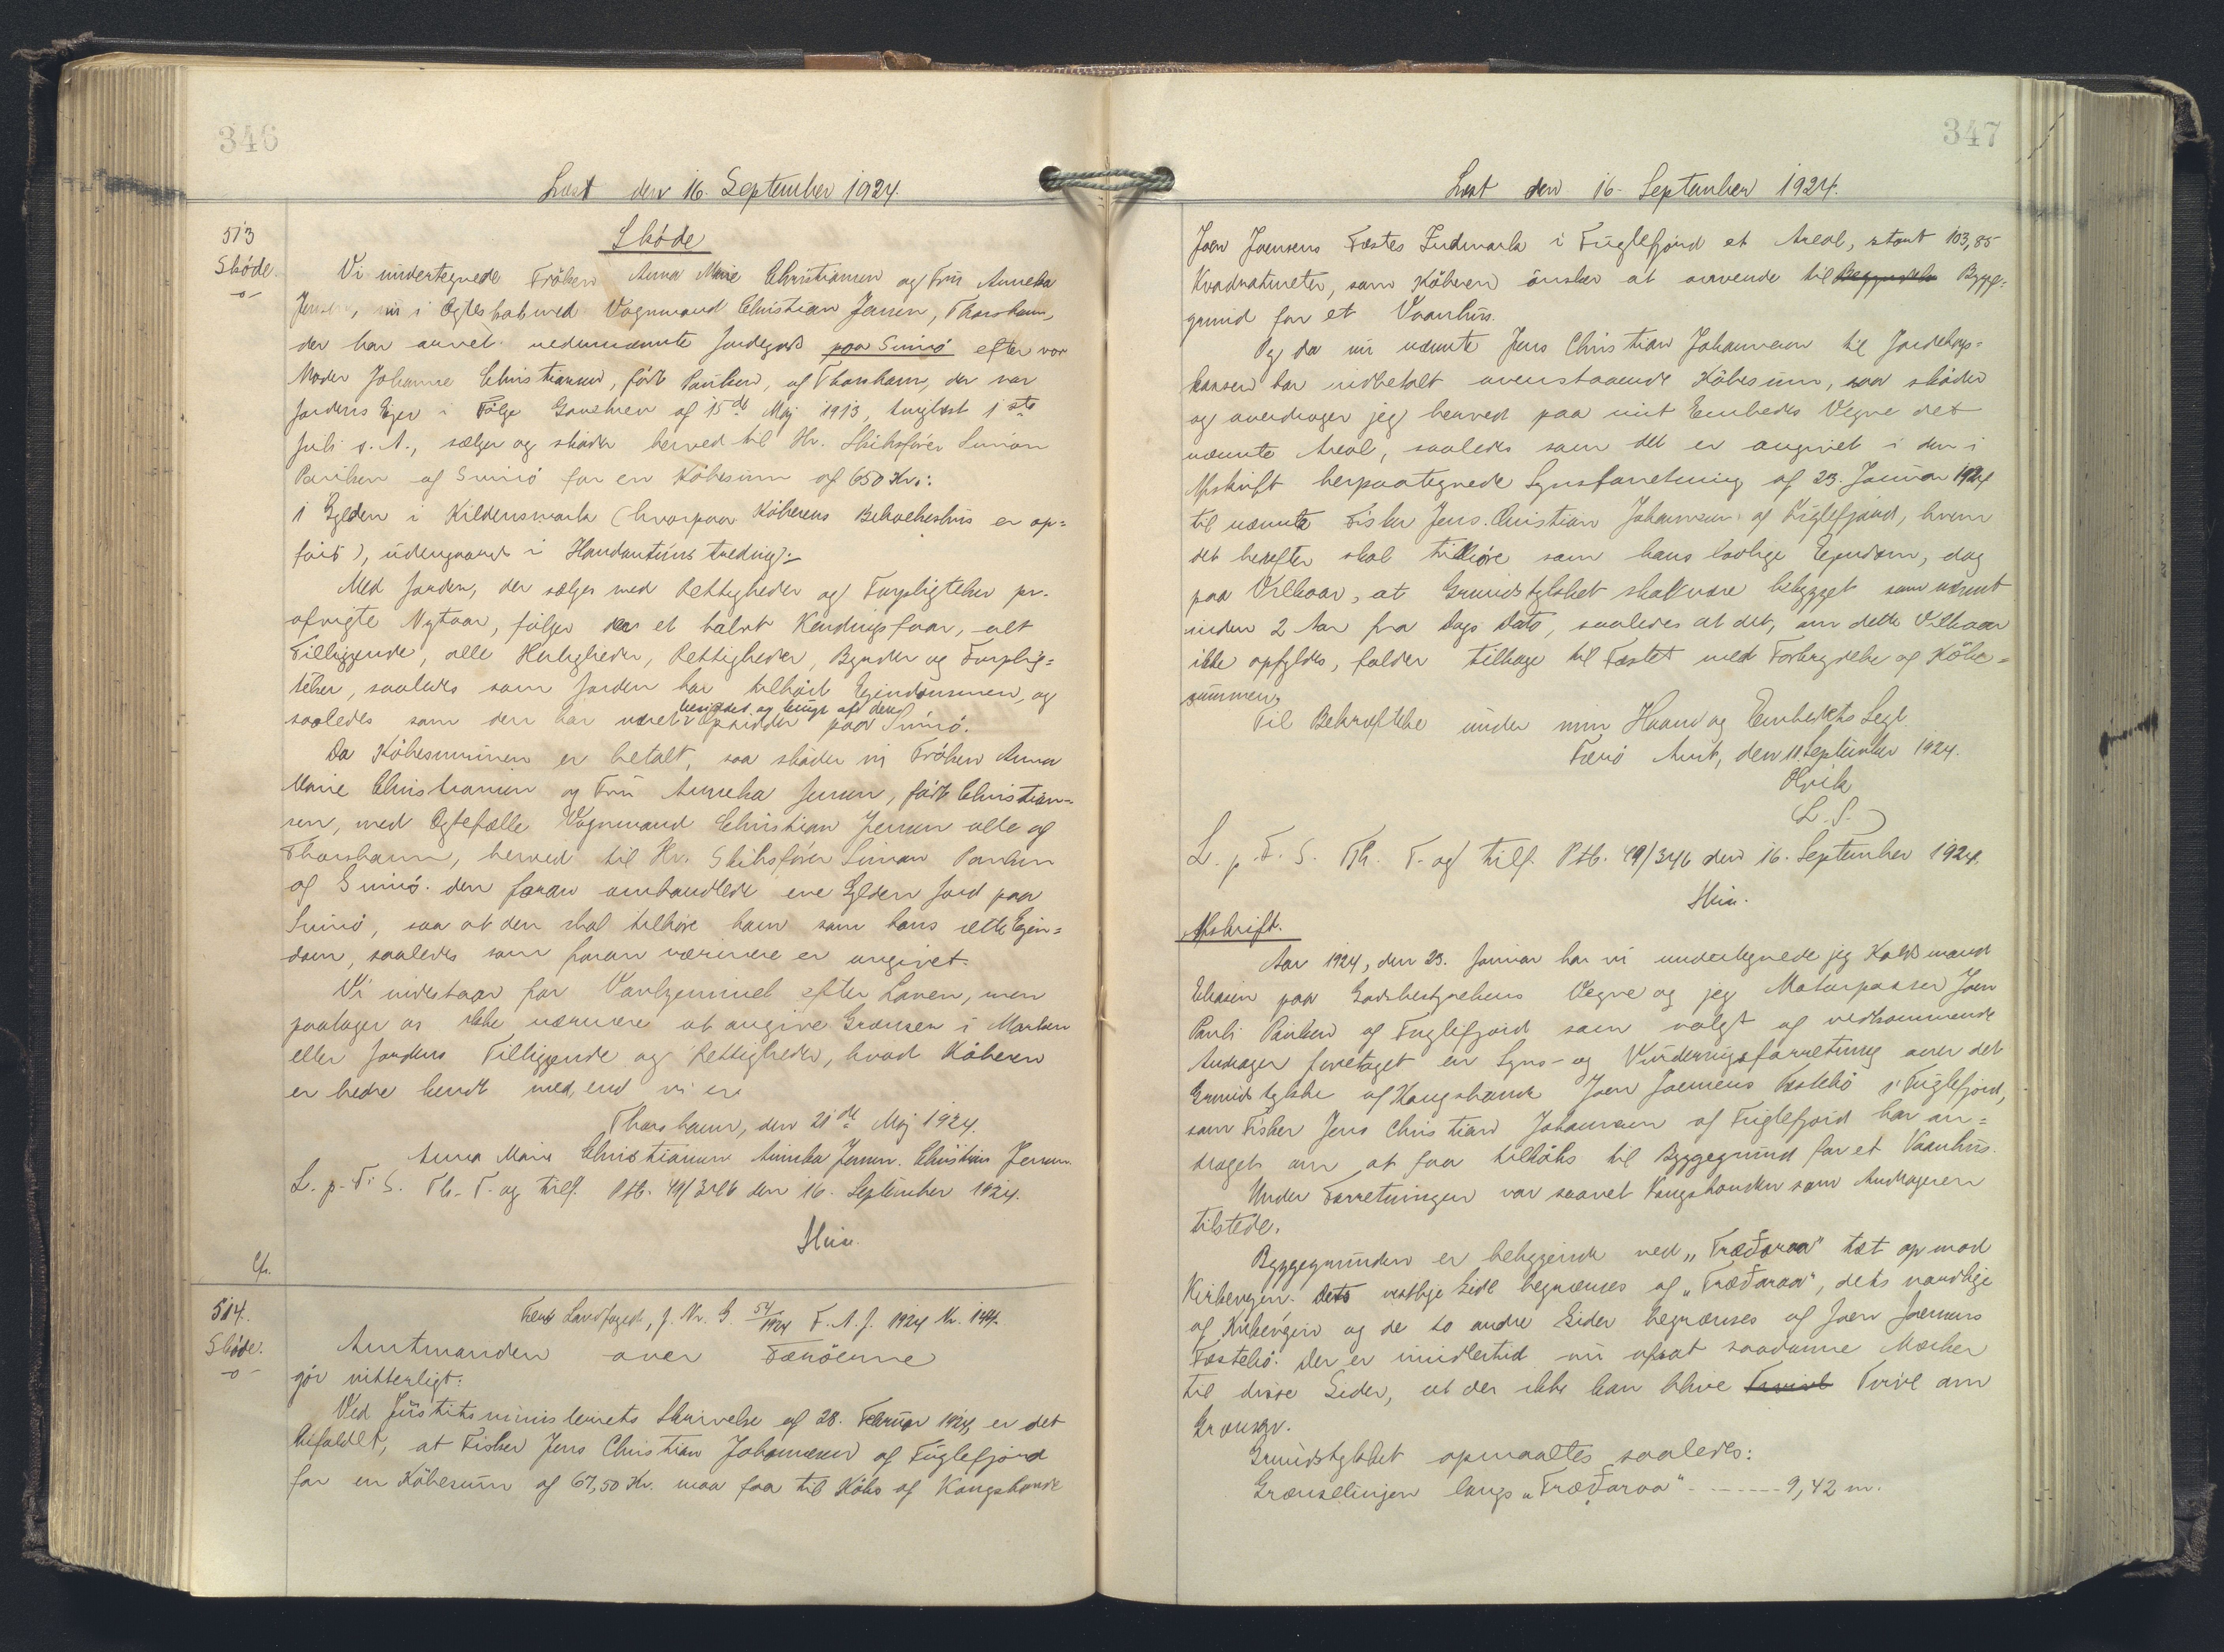 346
Læst den 16. September 1924.
513
Skóde.
Skóde
Vi undertegnede Fröken Anna Marie Christiansen og Fru Anneka
Jensen, nu i Ægteskab med Vognmand Christian Jensen, Thorshavn,
der har arvet nedennævnte Jordegods paa Sumö efter vor
Moder Johanne Christiansen, födt Poulsen, af Thorshavn, der var
Jordens Ejer i Fölge Gavebrev af 15de Maj 1913, tinglæst 1ste
Juli s. A., sælger og sköder herved til Hr. Skibsförer Simon
Poulsen af Sumö for en Köbesum af 650 Kr.:
1 Gylden i Kildensmark (hvorpaa Köberens Beboelseshus er op=
fört), udengaards i Handantuns treding:-
Med Jorden, der sælges med Rettigheder og Forpligtelser pr.
afvigte Nytaar, fölger der et halvt Kendingsfaar, alt
Tilliggende, alle Herligheder, Rettigheder, Byrder og Forplig=
telser, saaledes som Jorden har tilhört Ejendommen, og
benyttet og brugt af dens
saaledes som den har været Opsidder paa Sumö.
Da Köbesummen er betalt, saa sköder vi Fröken Anna
Marie Christiansen og Fru Anneka Jensen, födt Christian=
sen, med Ægtefælle Vognmand Christian Jensen alle af
Thorshavn, herved til Hr. Skibsförer Simon Poulsen
af Sumö den foran omhandlede ene Gylden Jord paa
Sumö, saa at den skal tilhöre ham som hans rette Ejen=
dom, saaledes som foran nærmere er angivet.
Vi indestaar for Vanhjemmel efter Loven, men
paatager os ikke nærmere at angive Grænsen i Marken
eller Jordens Tilliggende og Rettigheder, hvad Köberen
er bedre kendt med, end vi er.
Thorshavn, den 21de Maj 1924.
Anna Marie Christiansen Annika Jensen. Christian Jensen.
L. p. F. S. Th. T. og tilf. Ptb. 49/346 den 16. September 1924.
Cfr.
514.
Skóde.
Færö Landfoged, J. Nr. G. 54/1924 F. A. J. 1924 Nr. 144.
Amtmanden over Færöerne
gör vitterligt:
Ved Justitsministeriets Skrivelse af 28. Februar 1924 er det
bifaldet, at Fisker Jens Christian Johannesen af Fuglefjord
for en Köbesum af 67,50 Kr. maa faa til Köbs af Kongsbonde
347
Læst den 16. September 1924.
Joen Joensens Fæstes Indmark i Fuglefjord et Areal, stort 103,85
Kvadratmeter, som Köberen önsker at anvende til Bygge=
grund for et Vaanhus.
Og da nu nævnte Jens Christian Johannesen til Jordebogs=
kassen har indbetalt ovenstaaende Köbesum, saa sköder
og overdrager jeg herved paa mit Embeds Vegne det
nævnte Areal, saaledes som det er angivet i den i
Afskrift herpaategnede Synsforretning af 23. Januar 1924
til nævnte Fisker Jens Christian Johannesen af Fuglefjord, hvem
det herefter skal tilhöre som hans lovlige Ejendom, dog
paa Vilkaar, at Grundstykket skal være bebygget som nævnt
inden 2 Aar fra Dags Dato, saaledes at det, om dette Vilkaar
ikke opfyldes, falder tilbage til Fæstet med Fortabelse af Köbe=
summen.
Til Bekræftelse under min Haand og Embedets Segl.
Færö Amt, den 11. September 1924.
L. S.
L. p. F. S. Th. T. og tilf. Ptb. 49/346 den 16. September 1924.
Afskrift.
Aar 1924, den 23. Januar har vi undertegnede jeg Kaldsmand
Eliasen paa Godsbestyrelsens Vegne og jeg Motorpasser Joen
Pauli Poulsen af Fuglefjord som valgt af vedkommende
Andrager foretaget en Syns- og Vurderingsforretning over det
Grundstykke af Kongsbonde Joen Joensens Fæstebö i Fuglefjord,
som Fisker Jens Christian Johannesen af Fuglefjord har an=
draget om at faa tilköbs til Byggegrund for et Vaanhus.
Under Forretningen var saavel Kongsbonden som Andrageren
tilstede.
Byggegrunden er beliggende ved „Træðaraa" tæt op mod
Kirkevejen. Dets vestlige Side begrænses af „Træðaraa", dets nordlige
af Kirkevejen og de to andre Sider begrænses af Joen Joensens
Fæstebö. Der er imidlertid nu afsat saadanne Mærker
til disse Sider, at der ikke kan blive Tvivl Tvivl om
Grænsen.
Grundstykket opmaaltes saaledes:
Grænselinjen langs „Træðaraa" - - - - - 9,42 m.